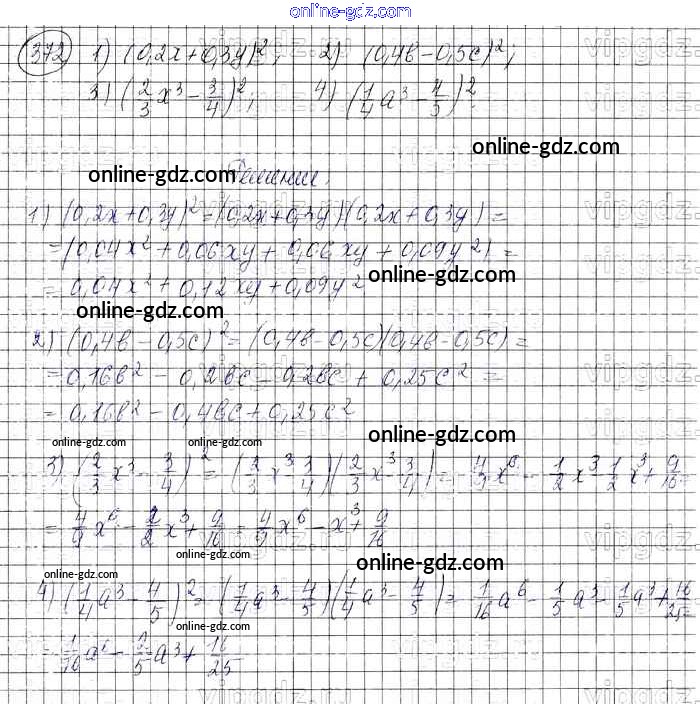 online-gdz.com
372 1) (0,2x+0,3y)²; 2) (0,4в-0,5с)²;
3) (2/3 x³ - 3/4)²; 4) (1/4 a³ - 4/5)²
online-gdz.com
online-gdz.com Решение.
1) (0,2x+0,3y)² = (0,2x+0,3y)(0,2x+0,3y) =
= (0,04x² + 0,06xy + 0,06xy + 0,09y²) =
online-gdz.com
= 0,04x² + 0,12xy + 0,09y²
online-gdz.com
2) (0,4в - 0,5с)² = (0,4в - 0,5с)(0,4в - 0,5с) =
= 0,16в² - 0,2вс - 0,2вс + 0,25с² =
= 0,16в² - 0,4вс + 0,25с²
online-gdz.com online-gdz.com
3) (2/3 x³ - 3/4)² = (2/3 x³ - 3/4)(2/3 x³ - 3/4) = 4/9 x⁶ - 1/2 x³ - 1/2 x³ + 9/16 =
online-gdz.com
= 4/9 x⁶ - 2/2 x³ + 9/16 = 4/9 x⁶ - x³ + 9/16
online-gdz.com online-gdz.com
online-gdz.com
4) (1/4 a³ - 4/5)² = (1/4 a³ - 4/5)(1/4 a³ - 4/5) = 1/16 a⁶ - 1/5 a³ - 1/5 a³ + 16/25 =
online-gdz.com
= 1/16 a⁶ - 2/5 a³ + 16/25